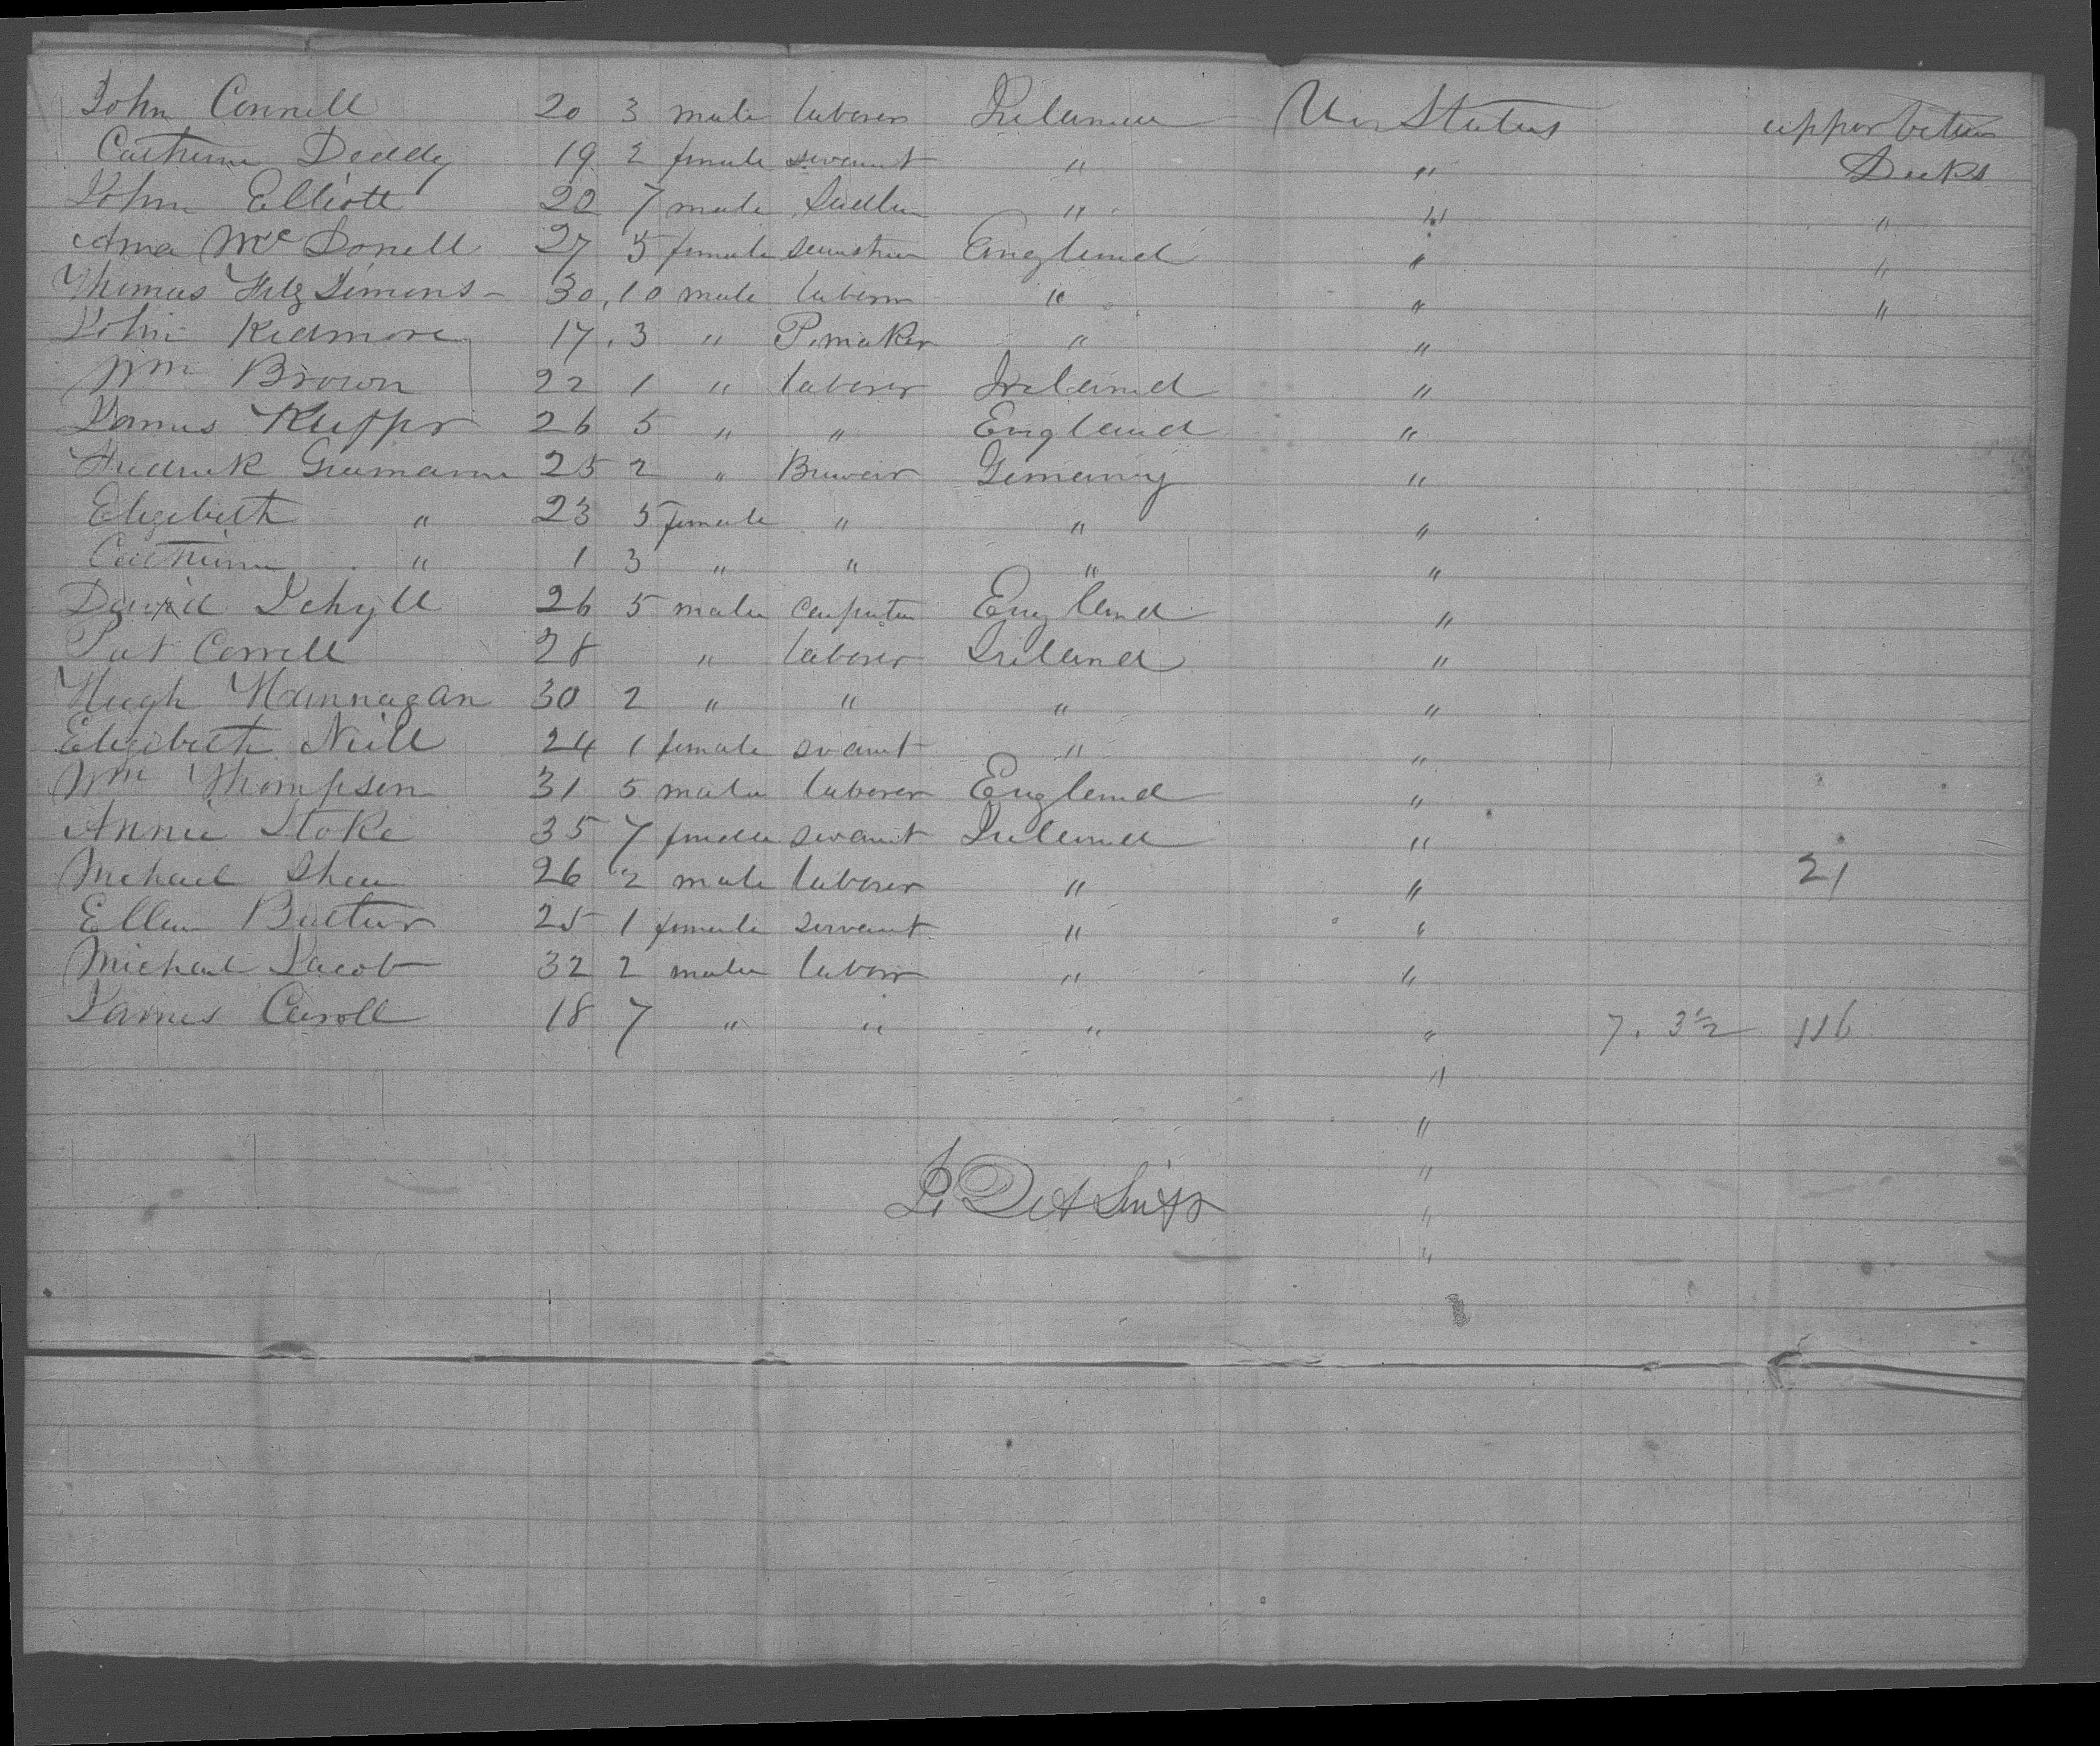 John Connell 20 3 male laborer Ireland Un States upper between
Catherine Deddy 19 2 female servant " " Decks
John Elliott 22 7 male Sadler " " "
Anna McDonell 27 5 female seamstress England " "
Thomas Fitz Simons - 30 10 male laborer " " "
John Kidmore 17 3 " P. maker " "
Wm Brown 22 1 " laborer Ireland "
James Kuffor 26 5 " " England "
Fredrick Grumann 25 2 " Brewer Germany "
Elizebeth " 23 5 female " " "
Catherine " 1 3 " " " "
David Jehyll 26 5 male carpenter England "
Pat Connell 28 " laborer Ireland "
Hugh Hannagan 30 2 " " " "
Elizebeth Neill 24 1 female servant " "
Wm Thompson 31 5 male laborer England "
Annie Stoke 35 7 female servant Ireland "
Michael Shea 26 2 male laborer " " 21
Ellen Butler 25 1 female servant " "
Michael Jacob 32 2 male laborer " "
James Carroll 18 7 " " " " 7. 3 1/2 116
"
"
"
"
"